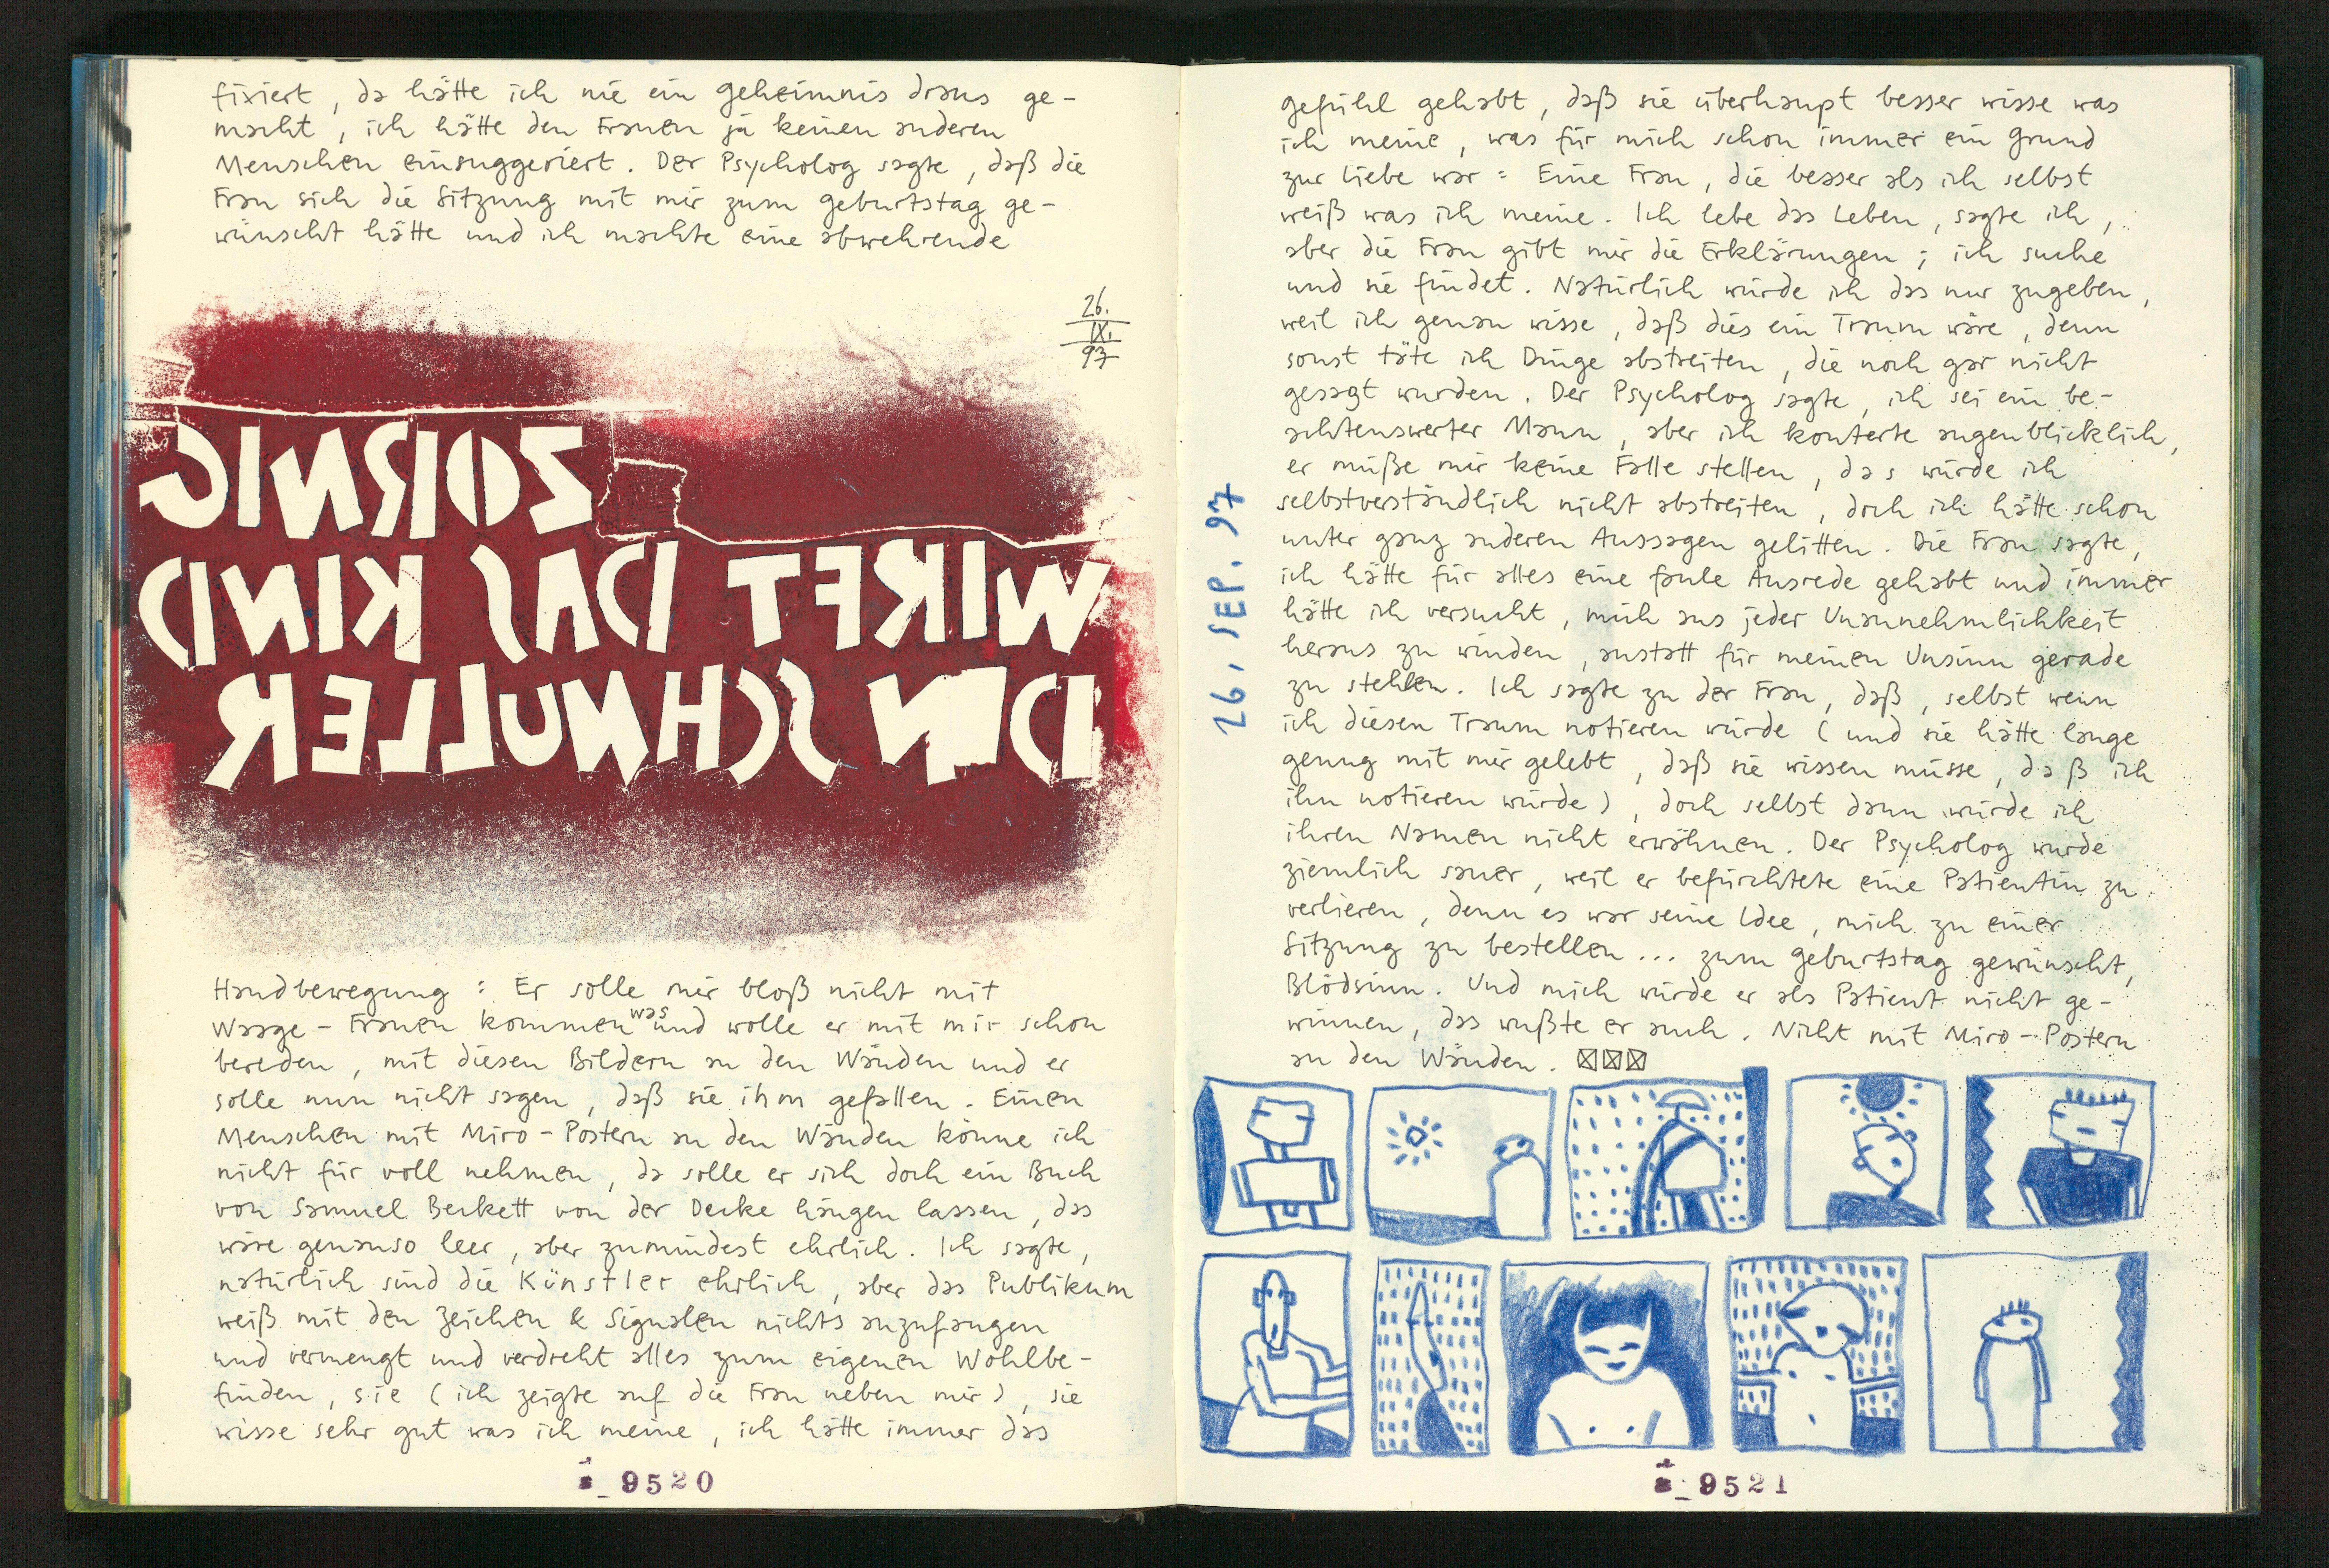 fixiert, da hätte ich nie ein Geheimnis draus ge-
macht, ich hätte den Frauen ja keinen anderen
Menschen einsuggeriert. Der Psycholog sagte, daß die
Frau sich die Sitzung mit mir zum Geburtstag ge-
wünscht hätte und ich machte eine abwehrende
26.
IX.
97
ZORNIG
WIRFT DAS KIND
DEN SCHNULLER
Handbewegung: Er solle mir bloß nicht mit
Waage-Frauen kommen und was wolle er mit mir schon
bereden, mit diesen Bildern an den Wänden und er
solle nun nicht sagen, daß sie ihm gefallen. Einen
Menschen mit Miro-Postern an den Wänden könne ich
nicht für voll nehmen, da solle er sich doch ein Buch
von Samuel Beckett von der Decke hängen lassen, das
wäre genauso leer, aber zumindest ehrlich. Ich sagte,
natürlich sind die Künstler ehrlich, aber das Publikum
weiß mit den Zeichen & Signalen nichts anzufangen
und vermengt und verdreht alles zum eigenen Wohlbe-
finden, sie (ich zeigte auf die Frau neben mir), sie
wisse sehr gut was ich meine, ich hätte immer das
9520
Gefühl gehabt, daß sie überhaupt besser wisse was
ich meine, was für mich schon immer ein Grund
zur Liebe war: Eine Frau, die besser als ich selbst
weiß was ich meine. Ich lebe das Leben, sagte ich,
aber die Frau gibt mir die Erklärungen; ich suche
und sie findet. Natürlich würde ich das nur zugeben,
weil ich genau wisse, daß dies ein Traum wäre, denn
sonst täte ich Dinge abstreiten, die noch gar nicht
gesagt wurden. Der Psycholog sagte, ich sei ein be-
achtenswerter Mann, aber ich konterte augenblicklich,
er müße mir keine Falle stellen, das würde ich
selbstverständlich nicht abstreiten, doch ich hätte schon
unter ganz anderen Aussagen gelitten. Die Frau sagte,
ich hätte für alles eine faule Ausrede gehabt und immer
hätte ich versucht, mich aus jeder Unannehmlichkeit
heraus zu winden, anstatt für meinen Unsinn gerade
zu stehen. Ich sagte zu der Frau, daß, selbst wenn
ich diesen Traum notieren würde (und sie hätte lange
genug mit mir gelebt, daß sie wissen müsse, daß ich
ihn notieren würde), doch selbst dann würde ich
ihren Namen nicht erwähnen. Der Psycholog wurde
ziemlich sauer, weil er befürchtete eine Patientin zu
verlieren, denn es war seine Idee, mich zu einer
Sitzung zu bestellen... zum Geburtstag gewünscht,
Blödsinn. Und mich würde er als Patient nicht ge-
winnen, das wußte er auch. Nicht mit Miro-Postern
an den Wänden.
26. SEP. 97
9521